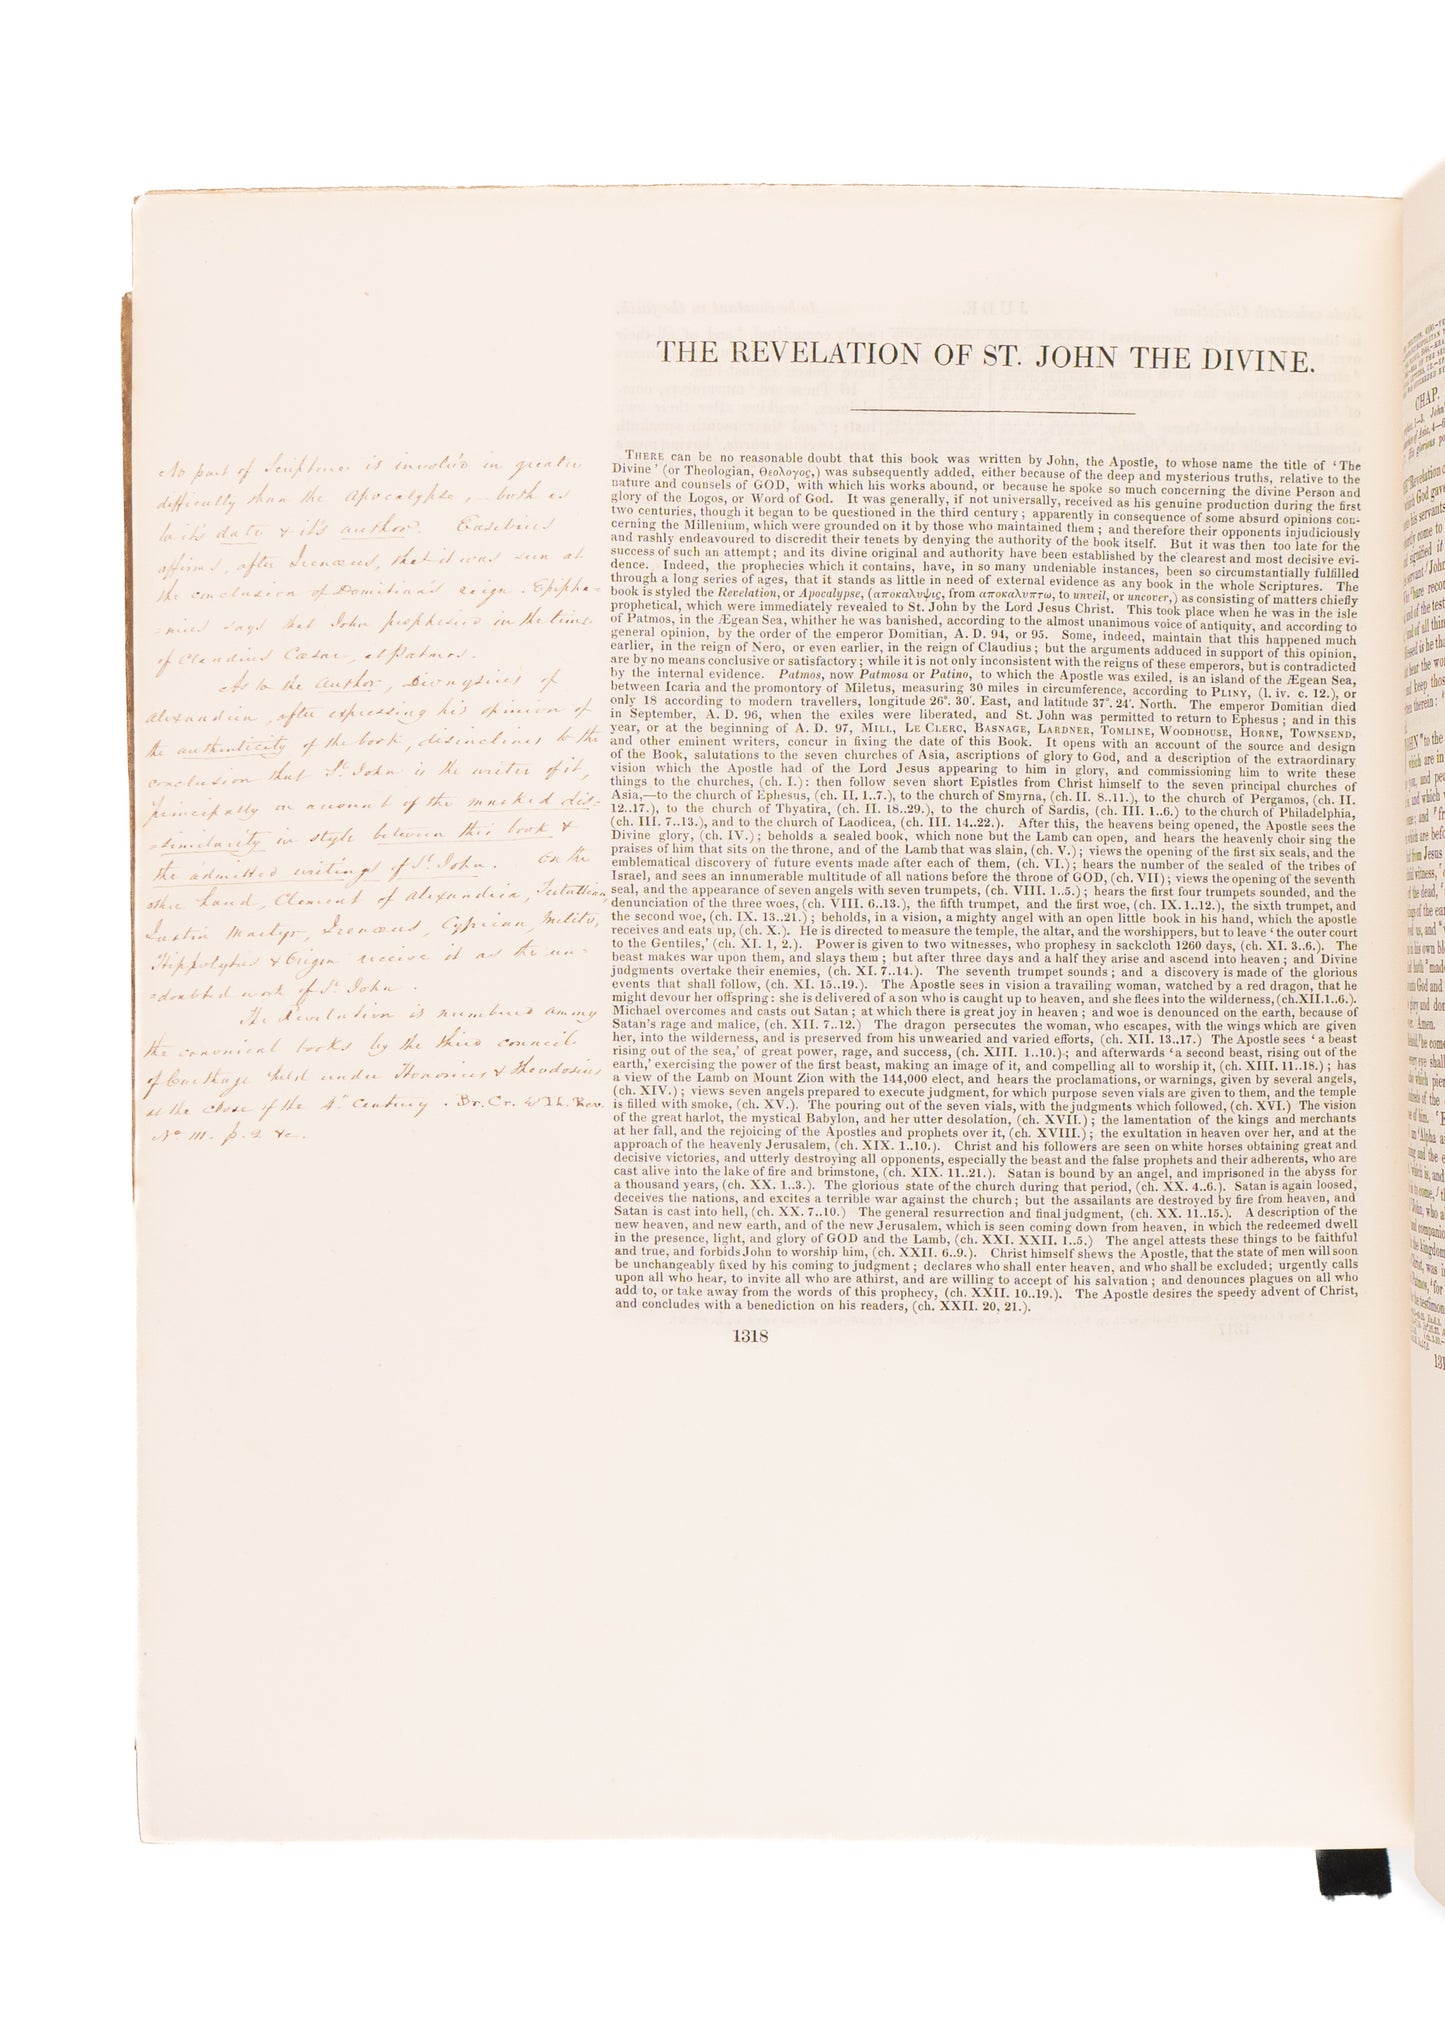 THE REVELATION OF ST. JOHN THE DIVINE.
No part of Scripture is involv'd in greater
difficulty than the Apocalypse, both as
to it's date & it's author. Eusebius
affirms, after Irenæus, that it was seen at
the conclusion of Domitian's reign. Epipha=
=nius says that John prophesied in the time
of Claudius Cæsar, at Patmos.
As to the Author, Dionysius of
Alexandria, after expressing his opinion of
the authenticity of the book, disinclines to the
conclusion that St. John is the writer of it,
principally on account of the marked dis=
=similarity in style between this book &
the admitted writings of St. John. On the
other hand, Clement of Alexandria, Tertullian,
Justin Martyr, Irenæus, Cyprian, Melito,
Hippolytus & Origin receive it as the un=
=doubted work of St. John.
The Revelation is numbered among
the canonical books by the third council
of Carthage held under Honorius & Theodosius
at the close of the 4th. Century. Br. Cr. & Th. Rev.
No. III. p. 2. &c.
THERE can be no reasonable doubt that this book was written by John, the Apostle, to whose name the title of ‘The
Divine’ (or Theologian, Θεολογος,) was subsequently added, either because of the deep and mysterious truths, relative to the
nature and counsels of GOD, with which his works abound, or because he spoke so much concerning the divine Person and
glory of the Logos, or Word of God. It was generally, if not universally, received as his genuine production during the first
two centuries, though it began to be questioned in the third century; apparently in consequence of some absurd opinions con-
cerning the Millenium, which were grounded on it by those who maintained them; and therefore their opponents injudiciously
and rashly endeavoured to discredit their tenets by denying the authority of the book itself. But it was then too late for the
success of such an attempt; and its divine original and authority have been established by the clearest and most decisive evi-
dence. Indeed, the prophecies which it contains, have, in so many undeniable instances, been so circumstantially fulfilled
through a long series of ages, that it stands as little in need of external evidence as any book in the whole Scriptures. The
book is styled the Revelation, or Apocalypse, (αποκαλυψις, from αποκαλυπτω, to unveil, or uncover,) as consisting of matters chiefly
prophetical, which were immediately revealed to St. John by the Lord Jesus Christ. This took place when he was in the isle
of Patmos, in the Ægean Sea, whither he was banished, according to the almost unanimous voice of antiquity, and according to
general opinion, by the order of the emperor Domitian, A. D. 94, or 95. Some, indeed, maintain that this happened much
earlier, in the reign of Nero, or even earlier, in the reign of Claudius; but the arguments adduced in support of this opinion,
are by no means conclusive or satisfactory; while it is not only inconsistent with the reigns of these emperors, but is contradicted
by the internal evidence. Patmos, now Patmosa or Patino, to which the Apostle was exiled, is an island of the Ægean Sea,
between Icaria and the promontory of Miletus, measuring 30 miles in circumference, according to PLINY, (l. iv. c. 12.), or
only 18 according to modern travellers, longitude 26°. 30′. East, and latitude 37°. 24′. North. The emperor Domitian died
in September, A. D. 96, when the exiles were liberated, and St. John was permitted to return to Ephesus; and in this
year, or at the beginning of A. D. 97, MILL, LE CLERC, BASNAGE, LARDNER, TOMLINE, WOODHOUSE, HORNE, TOWNSEND,
and other eminent writers, concur in fixing the date of this Book. It opens with an account of the source and design
of the Book, salutations to the seven churches of Asia, ascriptions of glory to God, and a description of the extraordinary
vision which the Apostle had of the Lord Jesus appearing to him in glory, and commissioning him to write these
things to the churches, (ch. I.): then follow seven short Epistles from Christ himself to the seven principal churches of
Asia,—to the church of Ephesus, (ch. II. 1..7.), to the church of Smyrna, (ch. II. 8..11.), to the church of Pergamos, (ch. II.
12..17.), to the church of Thyatira, (ch. II. 18..29.), to the church of Sardis, (ch. III. 1..6.) to the church of Philadelphia,
(ch. III. 7..13.), and to the church of Laodicea, (ch. III. 14..22.). After this, the heavens being opened, the Apostle sees the
Divine glory, (ch. IV.); beholds a sealed book, which none but the Lamb can open, and hears the heavenly choir sing the
praises of him that sits on the throne, and of the Lamb that was slain, (ch. V.); views the opening of the first six seals, and the
emblematical discovery of future events made after each of them, (ch. VI.); hears the number of the sealed of the tribes of
Israel, and sees an innumerable multitude of all nations before the throne of GOD, (ch. VII); views the opening of the seventh
seal, and the appearance of seven angels with seven trumpets, (ch. VIII. 1..5.); hears the first four trumpets sounded, and the
denunciation of the three woes, (ch. VIII. 6..13.), the fifth trumpet, and the first woe, (ch. IX. 1..12.), the sixth trumpet, and
the second woe, (ch. IX. 13..21.); beholds, in a vision, a mighty angel with an open little book in his hand, which the apostle
receives and eats up, (ch. X.). He is directed to measure the temple, the altar, and the worshippers, but to leave ‘the outer court
to the Gentiles,’ (ch. XI. 1, 2.). Power is given to two witnesses, who prophesy in sackcloth 1260 days, (ch. XI. 3..6.). The
beast makes war upon them, and slays them; but after three days and a half they arise and ascend into heaven; and Divine
judgments overtake their enemies, (ch. XI. 7..14.). The seventh trumpet sounds; and a discovery is made of the glorious
events that shall follow, (ch. XI. 15..19.). The Apostle sees in vision a travailing woman, watched by a red dragon, that he
might devour her offspring: she is delivered of a son who is caught up to heaven, and she flees into the wilderness, (ch. XII. 1..6.).
Michael overcomes and casts out Satan; at which there is great joy in heaven; and woe is denounced on the earth, because of
Satan's rage and malice, (ch. XII. 7..12.) The dragon persecutes the woman, who escapes, with the wings which are given
her, into the wilderness, and is preserved from his unwearied and varied efforts, (ch. XII. 13..17.) The Apostle sees ‘a beast
rising out of the sea,’ of great power, rage, and success, (ch. XIII. 1..10.); and afterwards ‘a second beast, rising out of the
earth,’ exercising the power of the first beast, making an image of it, and compelling all to worship it, (ch. XIII. 11..18.); has
a view of the Lamb on Mount Zion with the 144,000 elect, and hears the proclamations, or warnings, given by several angels,
(ch. XIV.); views seven angels prepared to execute judgment, for which purpose seven vials are given to them, and the temple
is filled with smoke, (ch. XV.). The pouring out of the seven vials, with the judgments which followed, (ch. XVI.) The vision
of the great harlot, the mystical Babylon, and her utter desolation, (ch. XVII.); the lamentation of the kings and merchants
at her fall, and the rejoicing of the Apostles and prophets over it, (ch. XVIII.); the exultation in heaven over her, and at the
approach of the heavenly Jerusalem, (ch. XIX. 1..10.). Christ and his followers are seen on white horses obtaining great and
decisive victories, and utterly destroying all opponents, especially the beast and the false prophets and their adherents, who are
cast alive into the lake of fire and brimstone, (ch. XIX. 11..21.). Satan is bound by an angel, and imprisoned in the abyss for
a thousand years, (ch. XX. 1..3.). The glorious state of the church during that period, (ch. XX. 4..6.). Satan is again loosed,
deceives the nations, and excites a terrible war against the church; but the assailants are destroyed by fire from heaven, and
Satan is cast into hell, (ch. XX. 7..10.) The general resurrection and final judgment, (ch. XX. 11..15.). A description of the
new heaven, and new earth, and of the new Jerusalem, which is seen coming down from heaven, in which the redeemed dwell
in the presence, light, and glory of GOD and the Lamb, (ch. XXI. XXII. 1..5.) The angel attests these things to be faithful
and true, and forbids John to worship him, (ch. XXII. 6..9.). Christ himself shews the Apostle, that the state of men will soon
be unchangeably fixed by his coming to judgment; declares who shall enter heaven, and who shall be excluded; urgently calls
upon all who hear, to invite all who are athirst, and are willing to accept of his salvation; and denounces plagues on all who
add to, or take away from the words of this prophecy, (ch. XXII. 10..19.). The Apostle desires the speedy advent of Christ,
and concludes with a benediction on his readers, (ch. XXII. 20, 21.).
1318
CHAP.